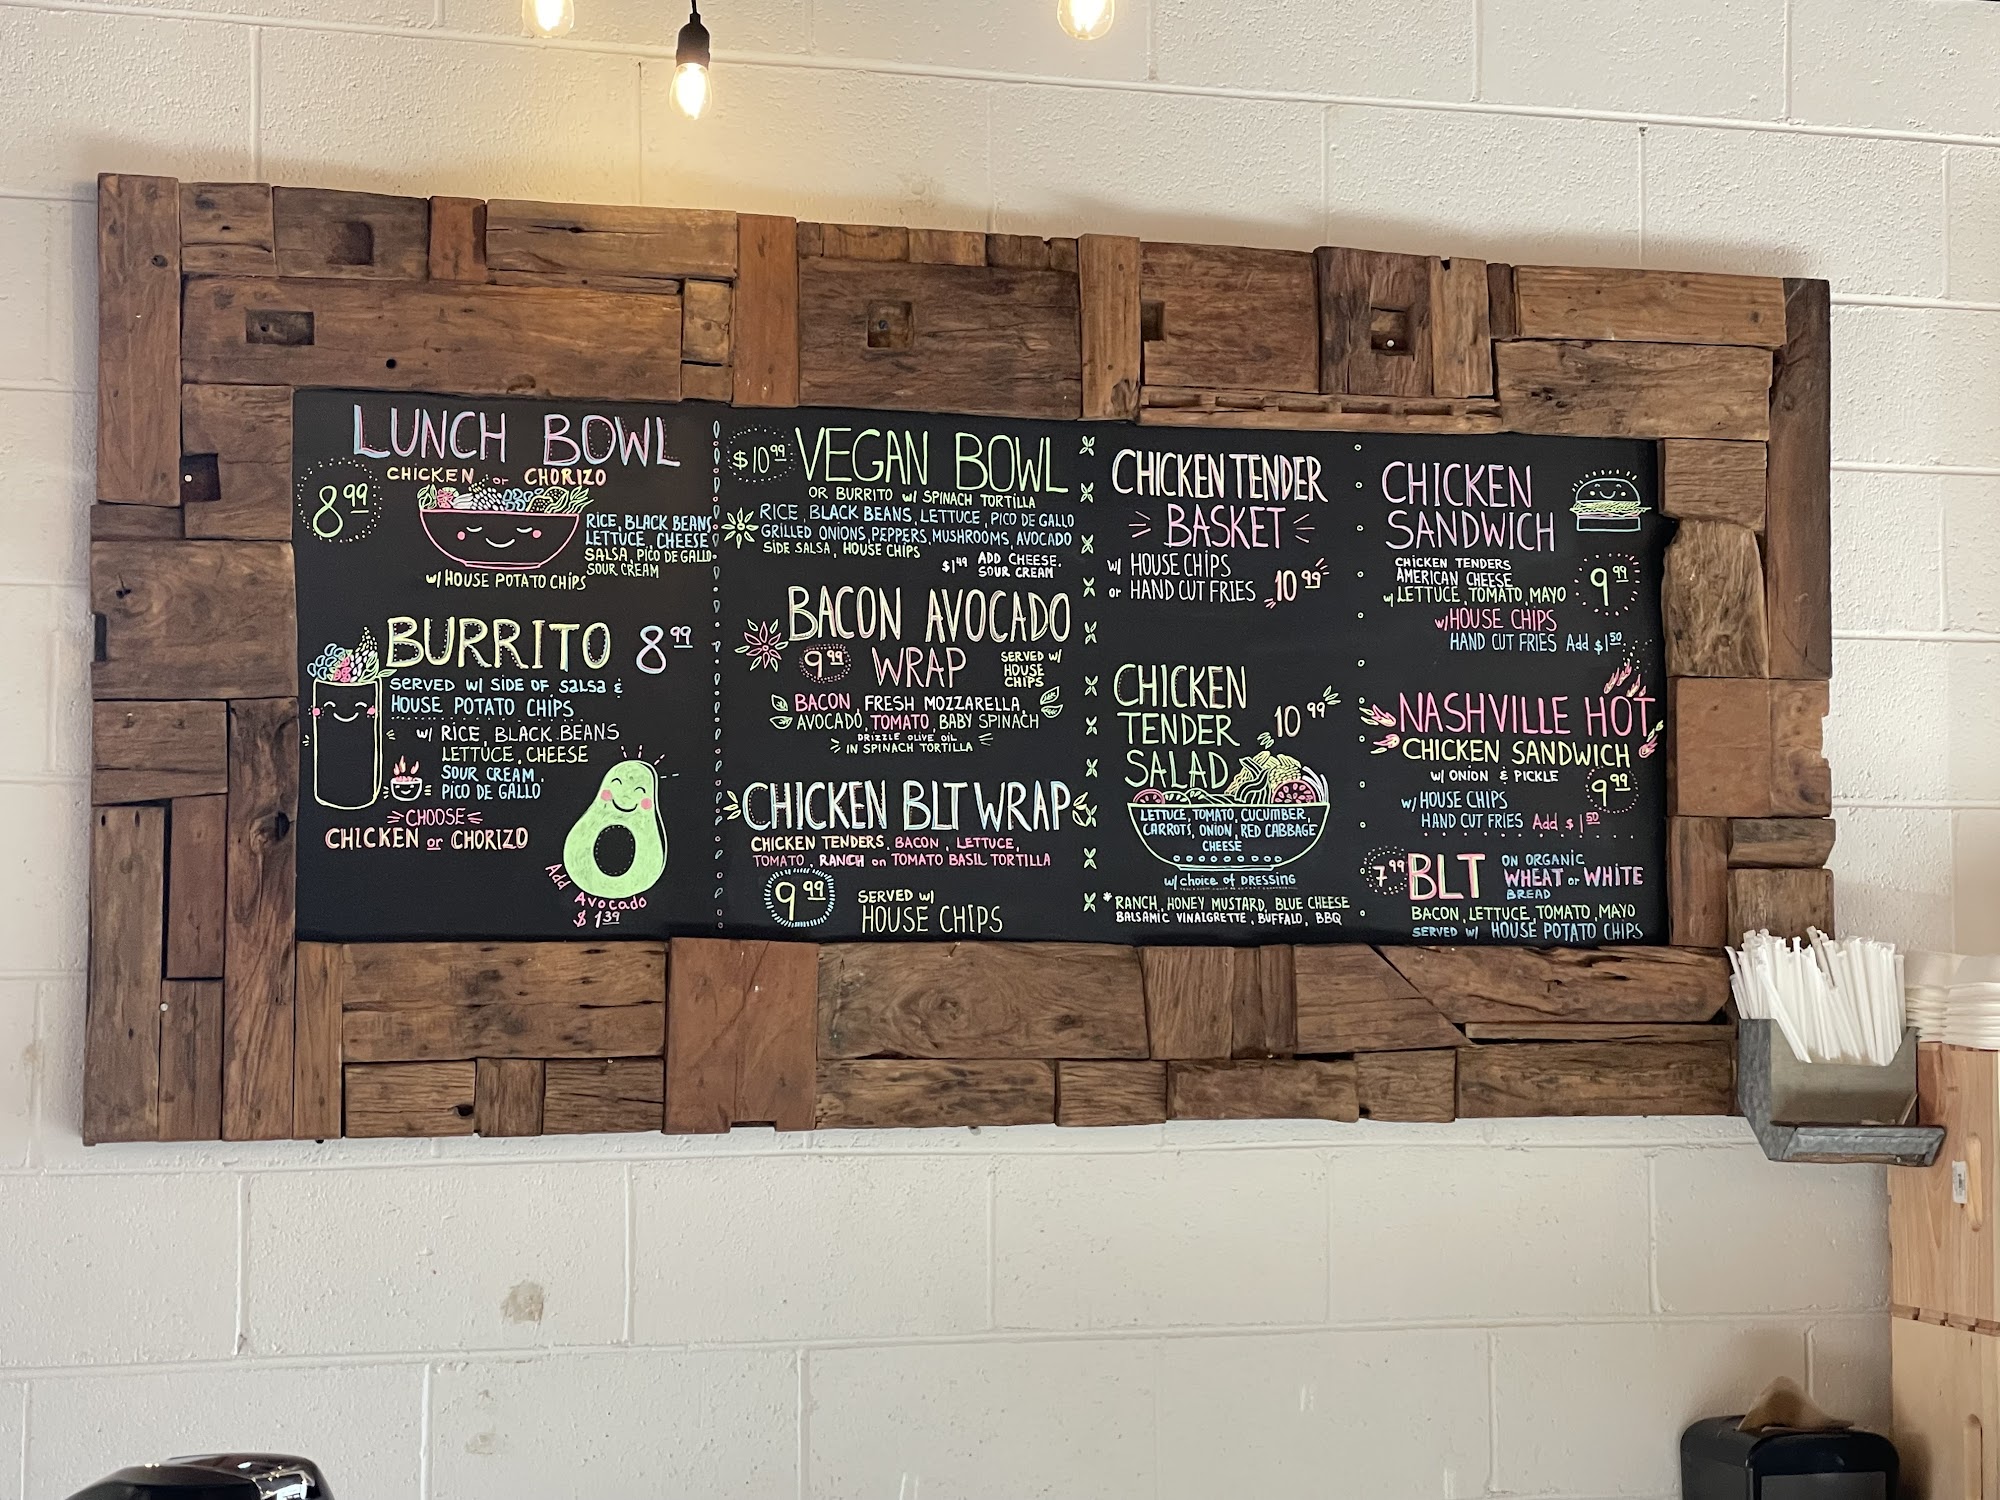 LUNCH BOWL
CHICKEN or CHORIZO
8.99
RICE, BLACK BEANS
LETTUCE, CHEESE
SALSA, PICO DE GALLO
SOUR CREAM
w/ HOUSE POTATO CHIPS
BURRITO 8.99
SERVED w/ SIDE OF SALSA &
HOUSE POTATO CHIPS
w/ RICE, BLACK BEANS
LETTUCE, CHEESE
SOUR CREAM,
PICO DE GALLO
CHOOSE
CHICKEN or CHORIZO
Add Avocado
$1.39
$10.99 VEGAN BOWL
OR BURRITO w/ SPINACH TORTILLA
RICE, BLACK BEANS, LETTUCE, PICO DE GALLO
GRILLED ONIONS, PEPPERS, MUSHROOMS, AVOCADO
SIDE SALSA, HOUSE CHIPS
$1.99 ADD CHEESE.
SOUR CREAM
BACON AVOCADO
9.99 WRAP
SERVED w/
HOUSE
CHIPS
BACON, FRESH MOZZARELLA,
AVOCADO, TOMATO, BABY SPINACH
DRIZZLE OLIVE OIL
IN SPINACH TORTILLA
CHICKEN BLT WRAP
CHICKEN TENDERS, BACON, LETTUCE,
TOMATO, RANCH on TOMATO BASIL TORTILLA
9.99
SERVED w/
HOUSE CHIPS
CHICKEN TENDER
BASKET
w/ HOUSE CHIPS
or HAND CUT FRIES 10.99
CHICKEN
TENDER
SALAD
10.99
LETTUCE, TOMATO, CUCUMBER,
CARROTS, ONION, RED CABBAGE
CHEESE
w/ choice of DRESSING
*RANCH, HONEY MUSTARD, BLUE CHEESE
BALSAMIC VINAIGRETTE, BUFFALO, BBQ
CHICKEN
SANDWICH
CHICKEN TENDERS
AMERICAN CHEESE
w/ LETTUCE, TOMATO, MAYO
9.99
w/ HOUSE CHIPS
HAND CUT FRIES Add $1.50
NASHVILLE HOT
CHICKEN SANDWICH
w/ ONION & PICKLE
9.99
w/ HOUSE CHIPS
HAND CUT FRIES Add $1.50
7.99 BLT
ON ORGANIC
WHEAT or WHITE
BREAD
BACON, LETTUCE, TOMATO, MAYO
SERVED w/ HOUSE POTATO CHIPS